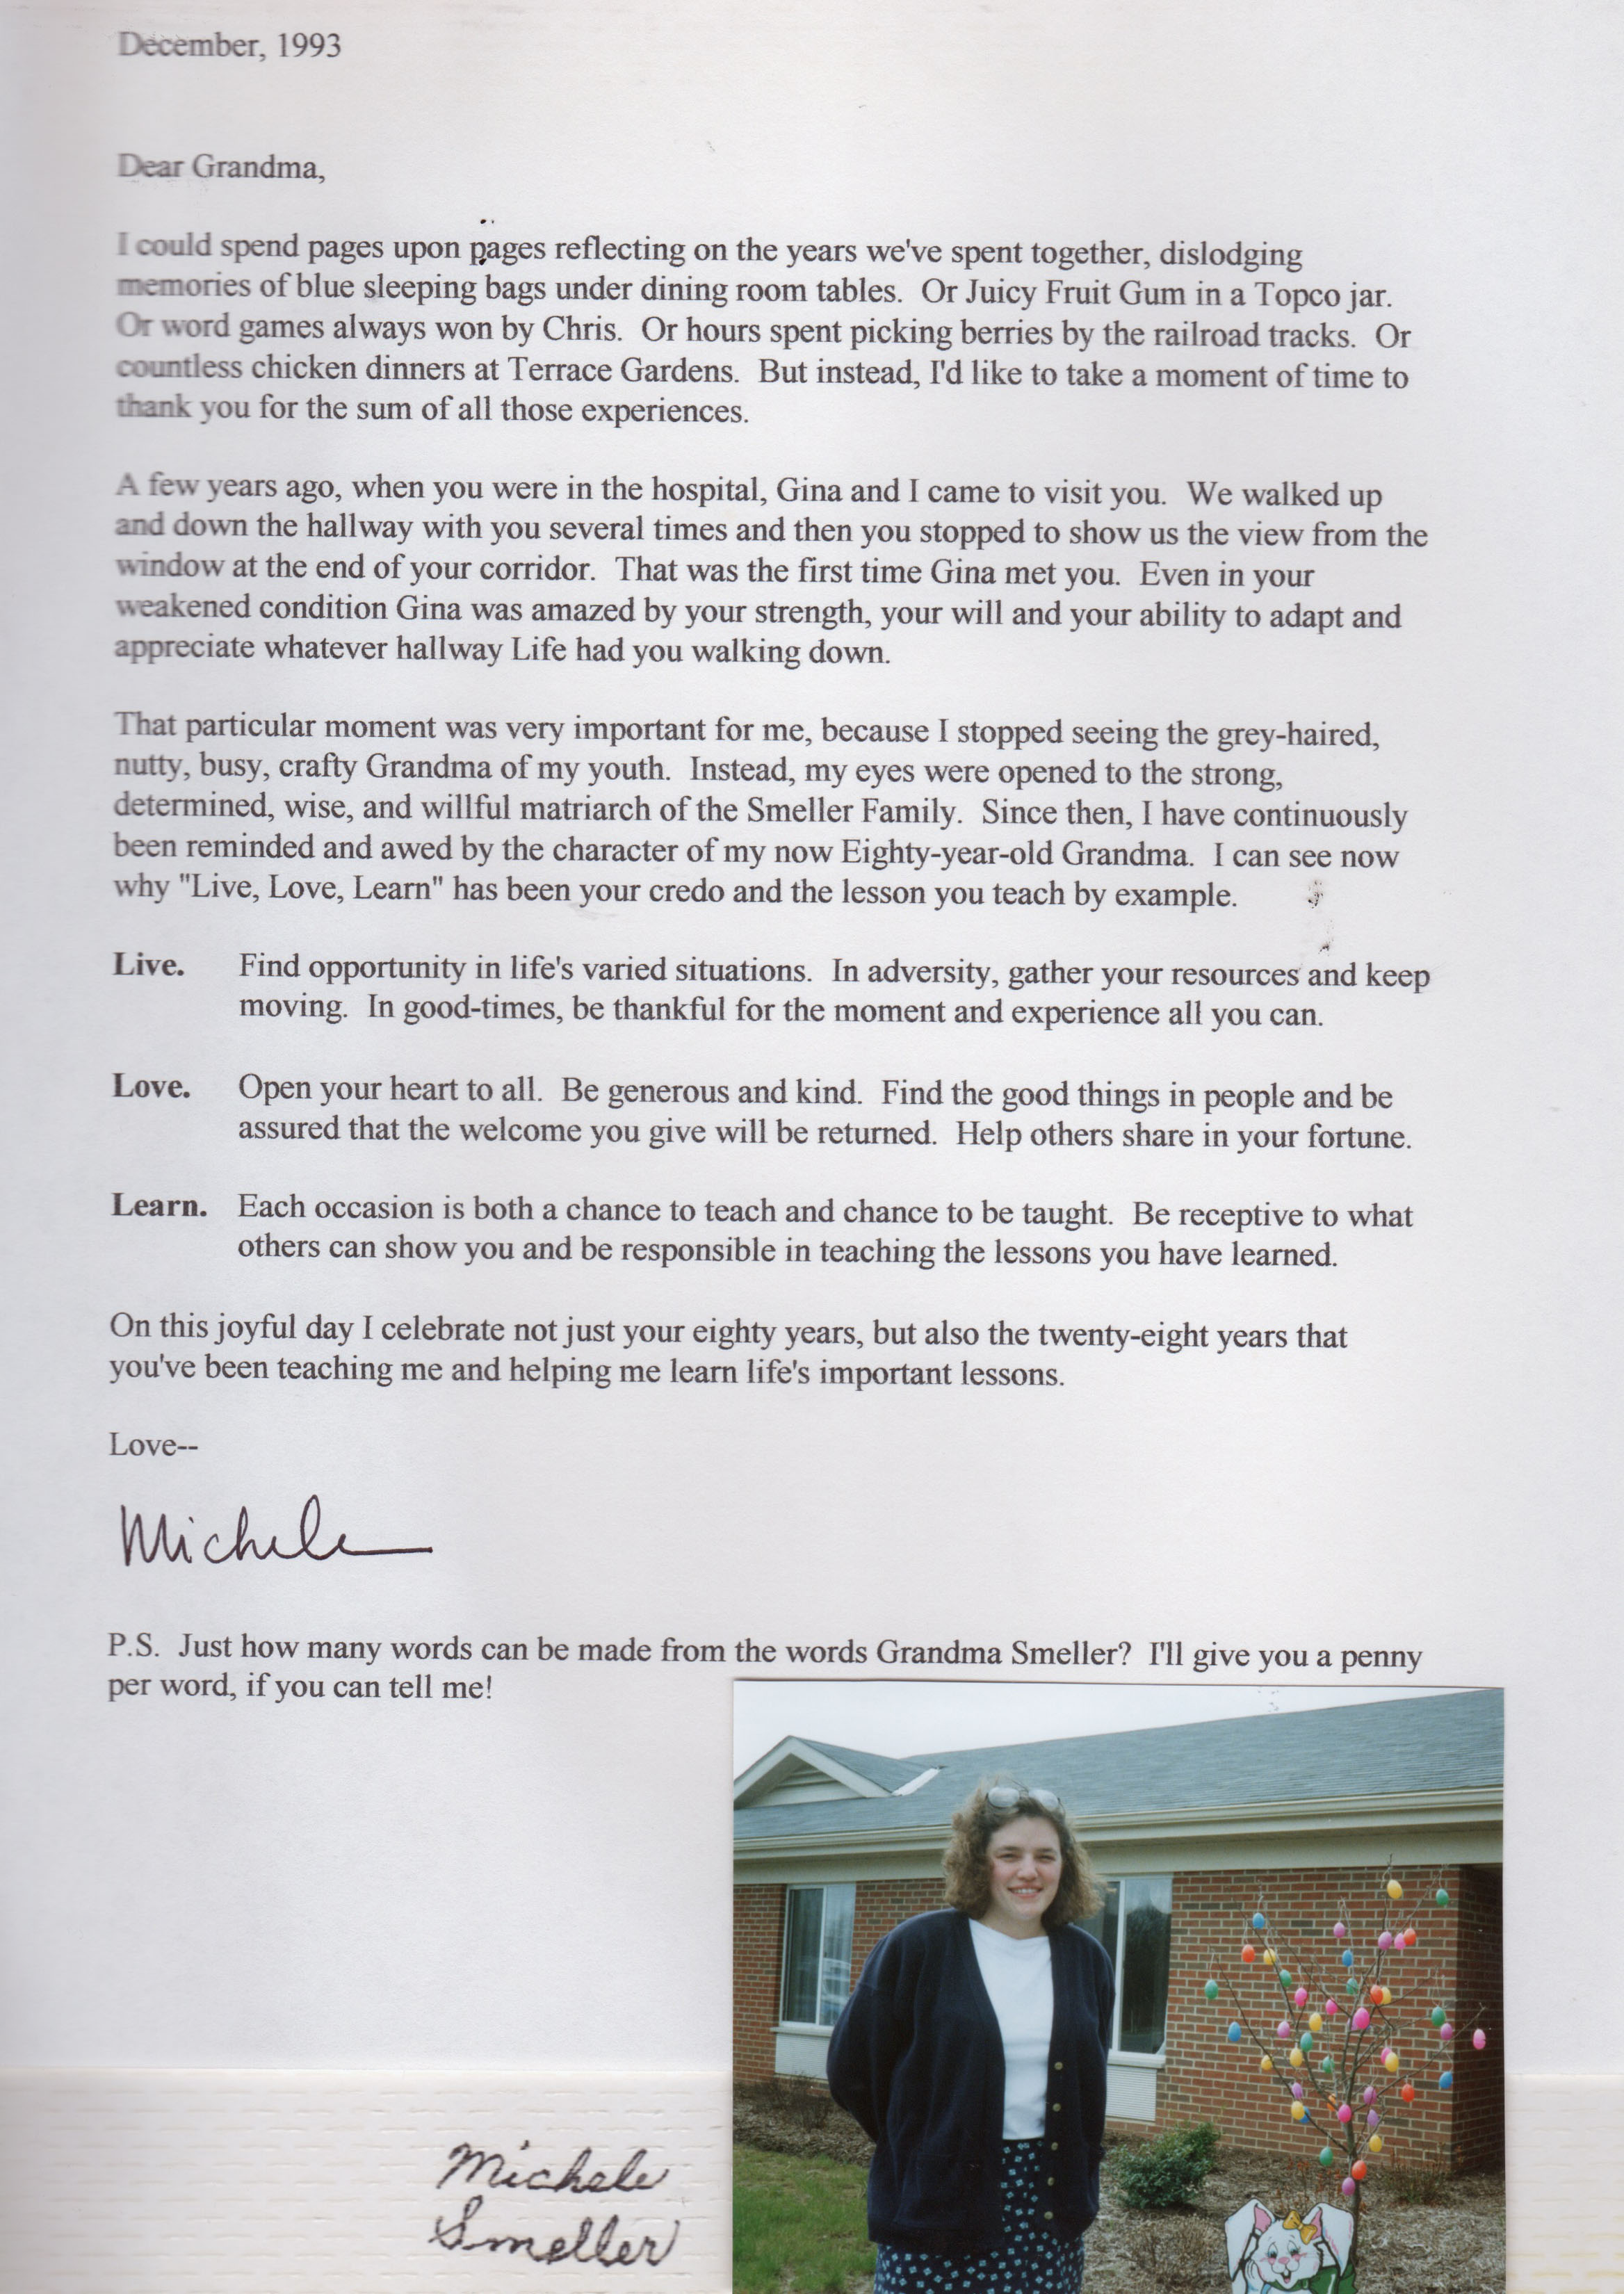 December, 1993
Dear Grandma,
I could spend pages upon pages reflecting on the years we've spent together, dislodging
memories of blue sleeping bags under dining room tables.  Or Juicy Fruit Gum in a Topco jar.
Or word games always won by Chris.  Or hours spent picking berries by the railroad tracks.  Or
countless chicken dinners at Terrace Gardens.  But instead, I'd like to take a moment of time to
thank you for the sum of all those experiences.
A few years ago, when you were in the hospital, Gina and I came to visit you.  We walked up
and down the hallway with you several times and then you stopped to show us the view from the
window at the end of your corridor.  That was the first time Gina met you.  Even in your
weakened condition Gina was amazed by your strength, your will and your ability to adapt and
appreciate whatever hallway Life had you walking down.
That particular moment was very important for me, because I stopped seeing the grey-haired,
nutty, busy, crafty Grandma of my youth.  Instead, my eyes were opened to the strong,
determined, wise, and willful matriarch of the Smeller Family.  Since then, I have continuously
been reminded and awed by the character of my now Eighty-year-old Grandma.  I can see now
why "Live, Love, Learn" has been your credo and the lesson you teach by example.
Live. Find opportunity in life's varied situations.  In adversity, gather your resources and keep
moving.  In good-times, be thankful for the moment and experience all you can.
Love. Open your heart to all.  Be generous and kind.  Find the good things in people and be
assured that the welcome you give will be returned.  Help others share in your fortune.
Learn. Each occasion is both a chance to teach and chance to be taught.  Be receptive to what
others can show you and be responsible in teaching the lessons you have learned.
On this joyful day I celebrate not just your eighty years, but also the twenty-eight years that
you've been teaching me and helping me learn life's important lessons.
Love--
Michele
P.S.  Just how many words can be made from the words Grandma Smeller?  I'll give you a penny
per word, if you can tell me!
Michele
Smeller